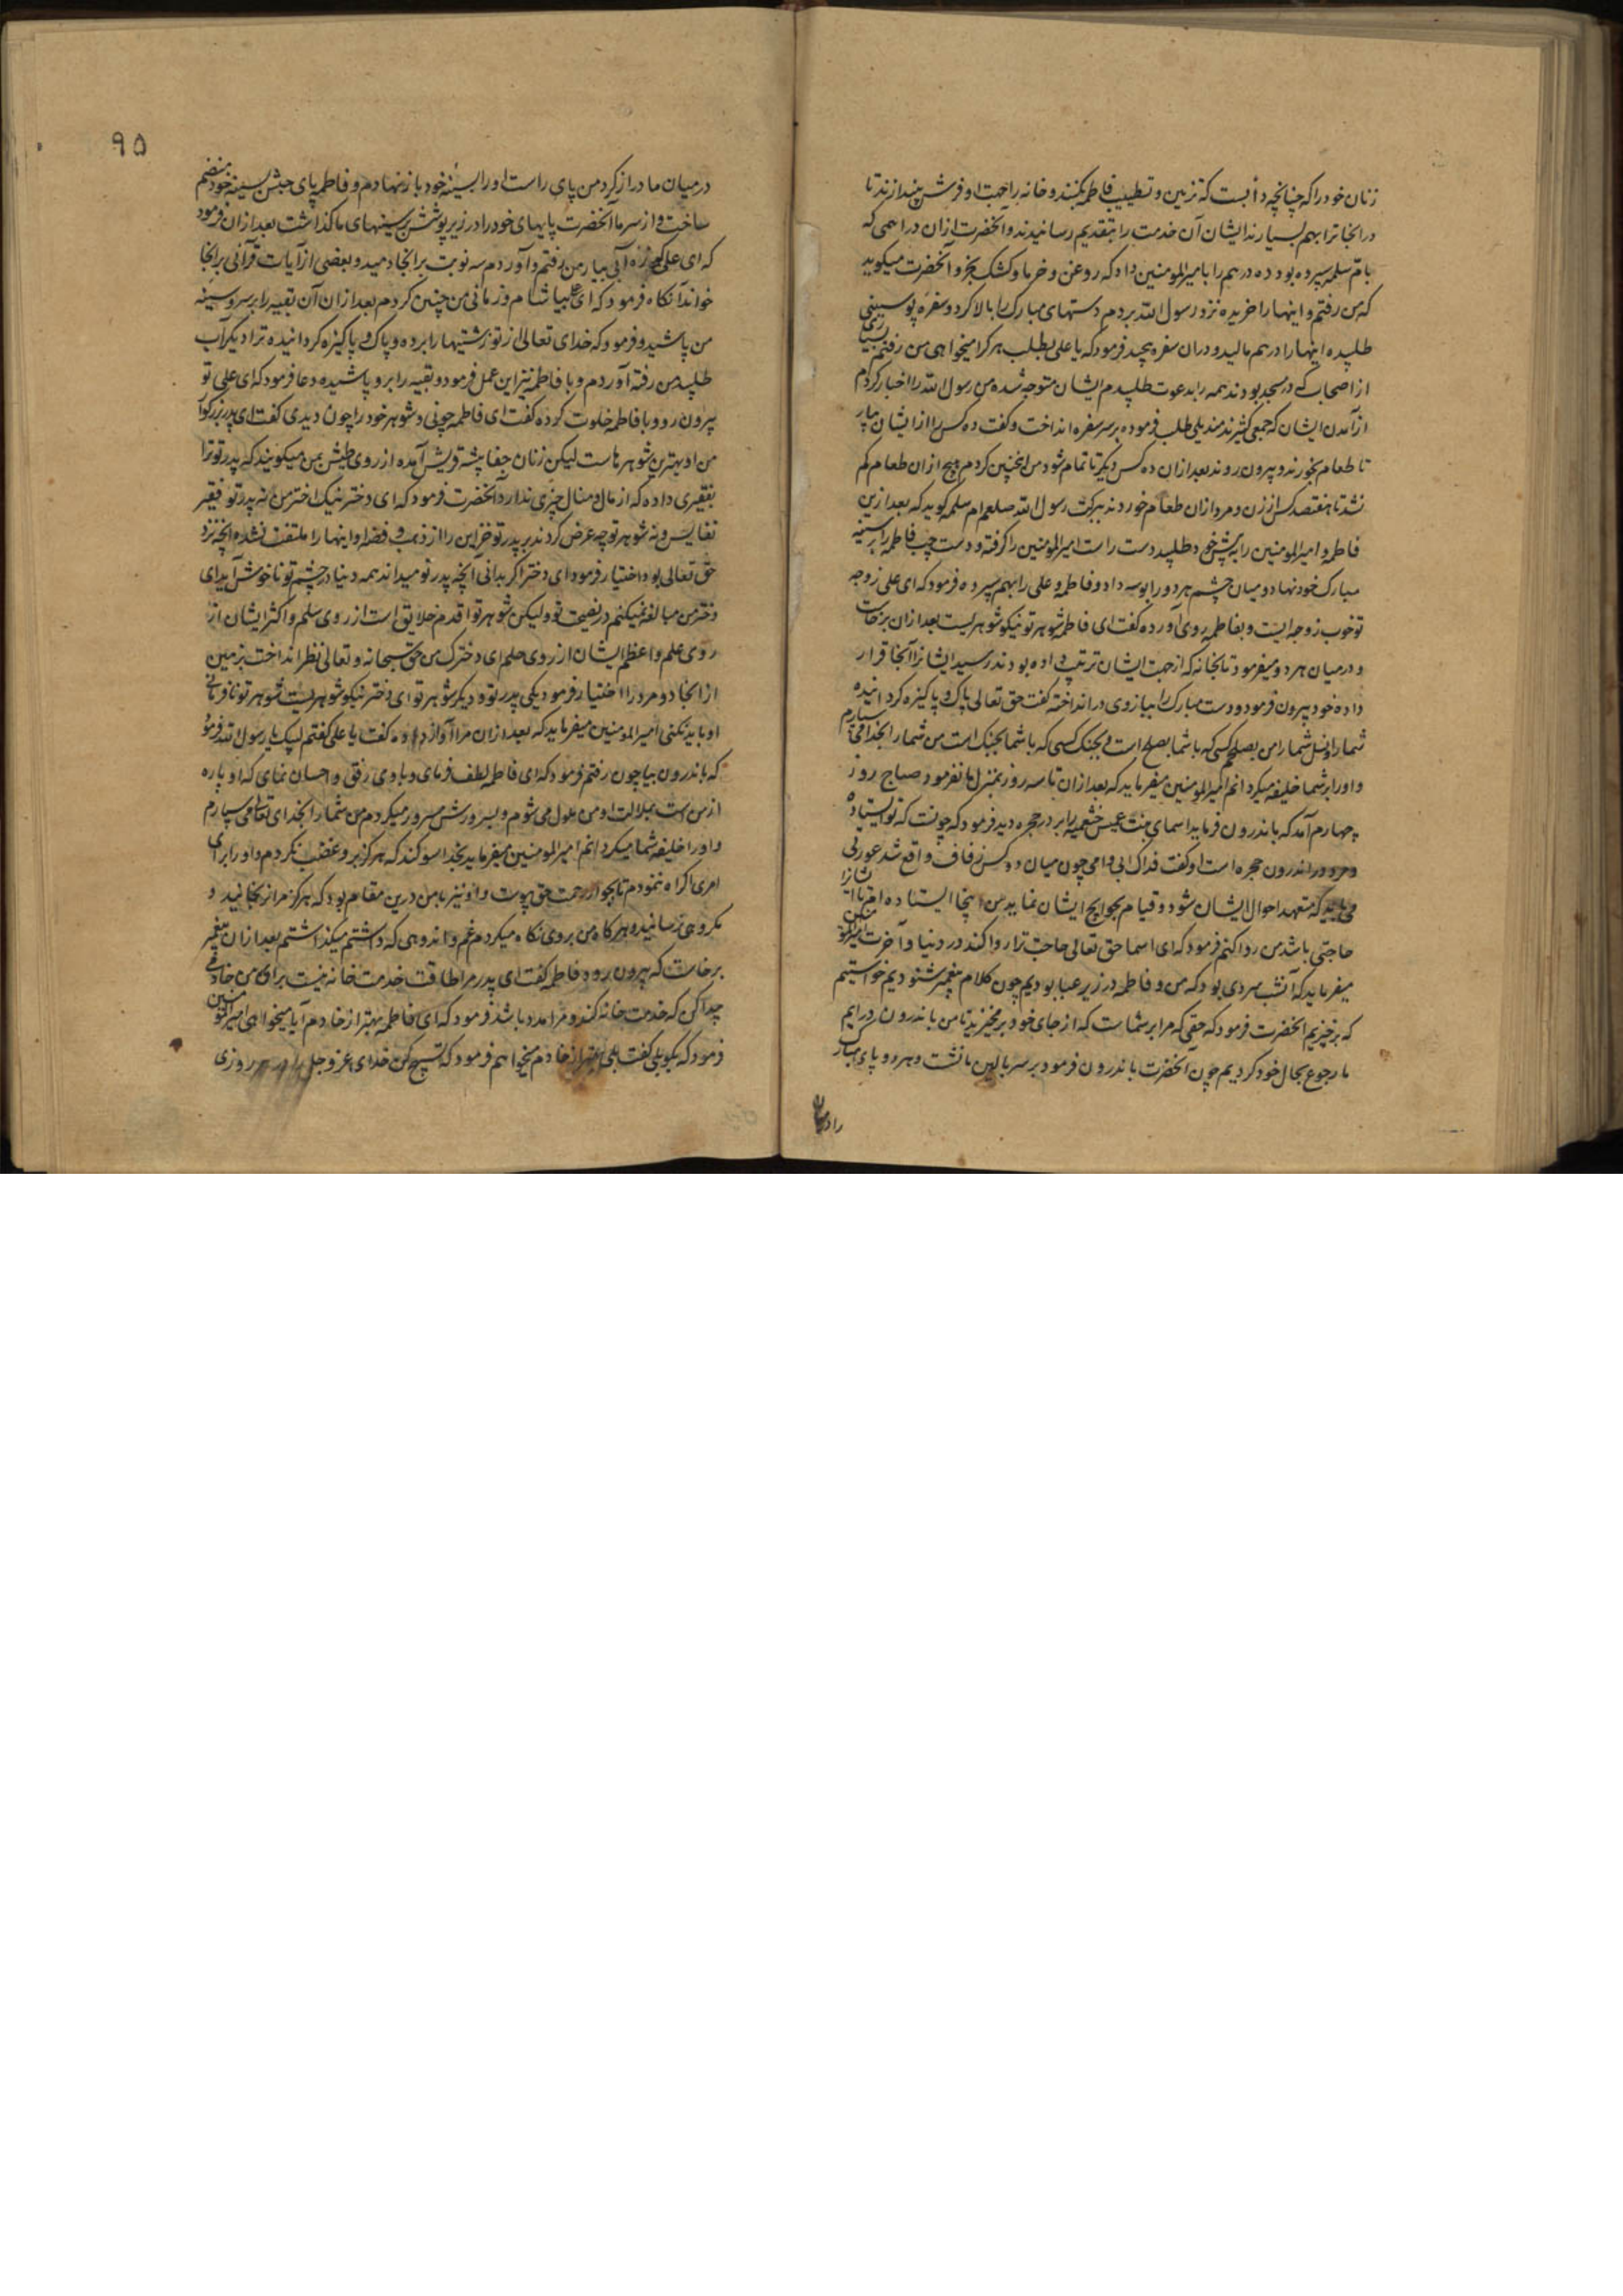 زنان خود را که چنانچه دأبست که تزیین و تطییب فاطمه بکنند و خانه را جهت او فرش بیندازند تا
در انجا ترا بهم بسپارند ایشان آن خدمت را بتقدیم رسانیدند و آنحضرت ازان دراهمی که
بام سلمه سپرده بود ده درهم را بامیرالمومنین داد که روغن و خرما و کشک بخر و آنحضرت میکوید
که من رفتم و اینها را خریده نزد رسول الله بردم دستهای مبارک را بالا کرد و سفره پوستینی
طلبیده اینها را در هم مالید و دران سفره فرمود که یا علی بطلب هر کرا میخواهی من رفتم
از اصحاب که در مسجد بودند همه را بدعوت طلبیدم ایشان متوجه شده من رسول الله را اخبار کردم
از آمدن ایشان که جمعی کثیرند مندیلی طلب فرموده بر سر سفره انداخت و کفت ده کس را از ایشان بیار
تا طعام بخورند و بیرون روند بعد ازان ده کس دیکر تا تمام شود من انچنین کردم و هیچ ازان طعام کم
نشد تا هفتصد کس از زن و مرد ازان طعام خوردند ببرکت رسول الله صلعم ام سلمه کوید که بعد ازین
فاطمه و امیرالمومنین را به پیش خود طلبید دست راست امیرالمومنین را کرفته و دست چپ فاطمه را بر سینه
مبارک خود نهاد و میان چشم هر دو را بوسه داد و فاطمه و علی را بهم سپرده فرمود که ای علی زوجه
تو خوب زوجه ایست و بفاطمه روی آورده کفت ای فاطمه شوهر تو نیکو شوهریست بعد ازان برخاست
و در میان هر دو میفرمود تا بخانه که از جهت ایشان ترتیب داده بودند رسید ایشانرا آنجا قرار
داده خود بیرون فرمود و دست مبارک را ببازوی در انداخته کفت حق تعالی پاک و پاکیزه کردانیده
شما را و نسل شما را من بصلحم کسی که با شما بصلح است و بجنک کسی که با شما بجنک است من شما را بخدا می سپارم
و او را بر شما خلیفه میکردانم امیرالمومنین میفرماید که بعد ازان تا سه روز بمنزل ما نفرمود صباح روز
چهارم آمد که باندرون فرماید اسمای بنت عمیس خثعمیه را بر در حجره دید فرمود که چونست که تو ایستاده
و مرد در اندرون حجره است او کفت فداک ابی و امی چون میان دو کس زفاف واقع شد عورتی
می باید که متعهد احوال ایشان شود و قیام بحوایج ایشان نماید من اینجا ایستاده ام تا ایشانرا
حاجتی باشد من روا کنم فرمود که ای اسما حق تعالی حاجت ترا روا کند در دنیا و آخرت امیرالمومنین
میفرماید که آنشب سردی بود که من و فاطمه در زیر عبا بودیم چون کلام پیغمبر شنودیم خواستیم
که برخیزیم آنحضرت فرمود که حقی که مرا بر شماست که از جای خود برمخیزید تا من باندرون درایم
ما رجوع بحال خود کردیم چون آنحضرت باندرون فرمود بر سر بالین ما نشست و هر دو پای مبارک
را در میان
۹۵
در میان ما دراز کرد من پای راست او را بسینه خود باز نهادم و فاطمه پای چپش بسینه خود منضم
ساخت و از سرما آنحضرت پایهای خود را در زیر پوشش سینهای ما کذاشت بعد ازان فرمود
که ای علی کوزه آبی بیار من رفتم و آوردم سه نوبت برانجا دمید و بعضی از آیات قرآنی برانجا
خواند آنکاه فرمود که ای علی بیاشام و زمانی من چنین کردم بعد ازان آن بقیه را بر سر و سینه
من پاشید و فرمود که خدای تعالی از تو زشتیها را برده و پاک و پاکیزه کردانیده ترا دیکر آب
طلبید من رفته آوردم و با فاطمه نیز این عمل فرمود و بقیه را برو پاشیده دعا فرمود که ای علی تو
بیرون رو و با فاطمه خلوت کرده کفت ای فاطمه چونی و شوهر خود را چون دیدی کفت ای پدر بزرکوار
من او بهترین شوهرهاست لیکن زنان جفا پیشه قریش آمده از روی طیش بمن میکویند که پدر تو ترا
بفقیری داده که از مال و منال چیزی ندارد آنحضرت فرمود که ای دختر نیک اختر من نه پدر تو فقیر
و نه شوهر تو چه عرض کردند بر پدر تو خزاین را از ذهب و فضه او اینها را ملتفت نشده آنچه نزد
حق تعالی بود اختیار فرمود ای دختر اکر بدانی آنچه پدر تو میداند همه دنیا در چشم تو ناخوش آید ای
دختر من مبالغه نمیکنم در نصیحت تو و لیکن شوهر تو اقدم خلایق است از روی سلم و اکثر ایشان از
روی علم و اعظم ایشان از روی حلم ای دخترک من حق سبحانه و تعالی نظر انداخت بزمین
از انجا دو مرد را اختیار فرمود یکی پدر تو و دیکر شوهر تو ای دختر نیکو شوهریست شوهر تو نافرمانی
او باید نکنی امیرالمومنین میفرماید که بعد ازان مرا آواز داده کفت یا علی کفتم لبیک یا رسول الله فرمود
که باندرون بیا چون رفتم فرمود که ای فاطمه لطف فرمای و با وی رفق و احسان نمای که او پاره
از من است بملالت او من ملول می شوم و بسرورش مسرور میکردم من شما را بخدای تعالی می سپارم
و او را خلیفه شما میکردانم امیرالمومنین میفرماید بخدا سوکند که هرکز برو غضب نکردم و او را برای
امری اکراه ننمودم تا بجوار رحمت حق پیوست و او نیز با من درین مقام بود که هرکز مرا نرنجانید و
مکروهی نرسانید و هرکاه من بروی نکاه میکردم غم و اندوهی که داشتم میکذاشتم بعد ازان پیغمبر
برخاست که بیرون رود فاطمه کفت ای پدر مرا طاقت خدمت خانه نیست برای من خادمی
پیدا کن که خدمت خانه کند و مرا مدد باشد فرمود که ای فاطمه بهتر از خادم آیا میخواهی امیرالمومنین
فرمود که بکو بلی کفت بلی بهتر از خادم میخواهم فرمود که تسبیح کن خدای عز و جل را در هر روزی